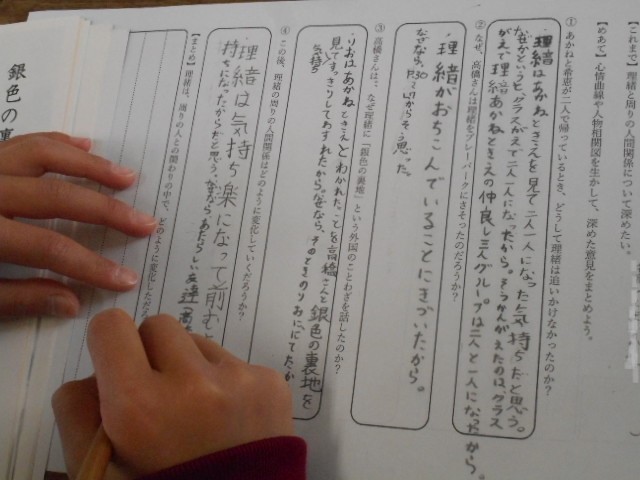 【これまで】理緒と周りの人間関係について深めたい。
【めあて】心情曲線や人物相関図を生かして、深めた意見をまとめよう。
① あかねと希恵が二人で帰っているとき、どうして理緒は追いかけなかったのだろうか?
理緒はあかねときえを見て二人一人になった気持ちだと思う。
なぜかというと、クラスがえで二人一人になったから。そうかんがえたのは、クラス
がえで理緒あかねときえの仲良し三人グループは二人と一人になったから。
② なぜ、高橋さんは理緒をプレーパークにさそったのだろうか?
理緒がおちこんでいることにきづいたから。
なぜなら、P.30
からそう思った。
③ 高橋さんは、なぜ理緒に「銀色の裏地」という外国のことわざを話したのか?
りおはあかねときえとわかれたことを高橋さんと銀色の裏地を
見てすっきりしてわすれたから。なぜなら、そのときのりおににてたか
気持ち
④ この後、理緒の周りの人間関係はどのように変化していくだろうか?
理緒は気持ち楽になって前むと
持ちになったからだと思う。なぜなら、あたらしい友達
【まとめ】理緒は、周りの人との関わりの中で、どのように変化しただろ
銀色の裏